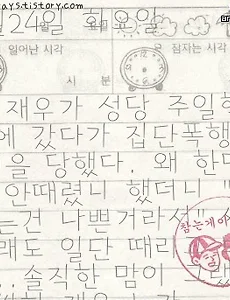 ays.tistory.com
월24일 화요일
일어난 시각
잠자는 시각
시 분
재우가 성당 주일학
에 갔다가 집단폭행
을 당했다. 왜 한다
안때렸니 했더니 "
는건 나쁜거라서
래도 일단 때리
솔직한 맘이
참는게